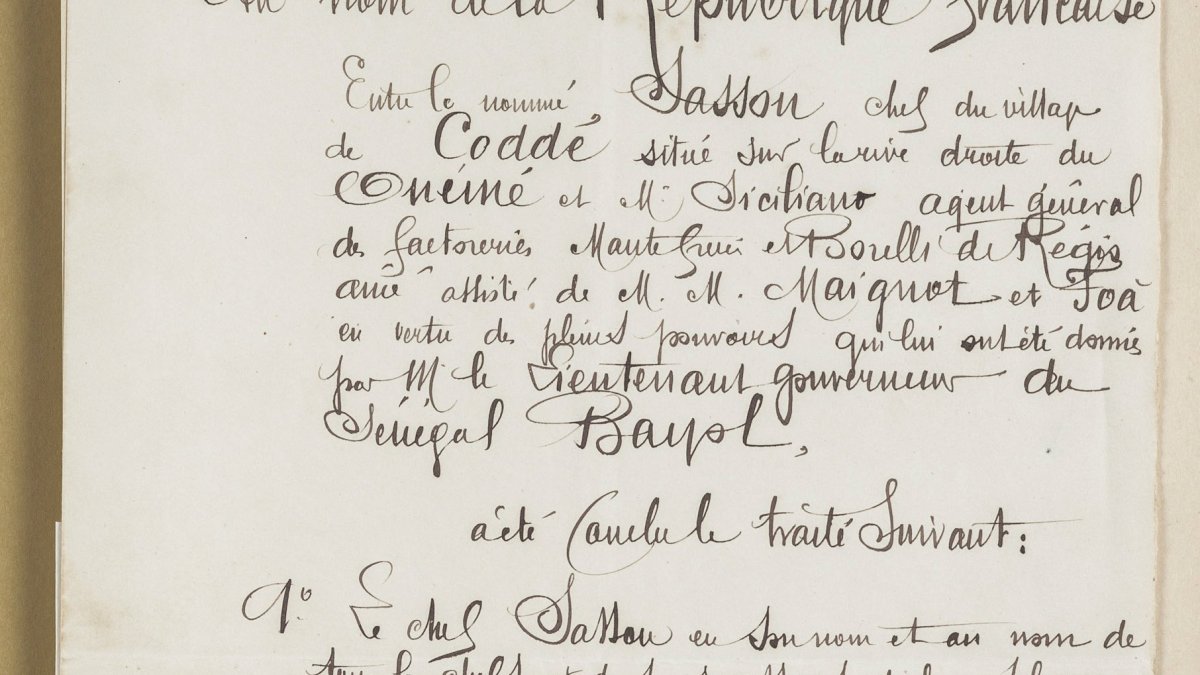 Au nom de la République Française
Entre le nommé, Sasson chef du village
de Coddé situé sur la rive droite du
Ouémé et M. Siciliano agent général
des factoreries Mante frères et Borelli de Régis
aîné assisté de M. M. Maignot et Foà
en vertu des pleins pouvoirs qui lui ont été donnés
par M. le Lieutenant gouverneur du
Sénégal Bayol,
a été Conclu le traité Suivant :
1º. Le chef Sasson en son nom et au nom de